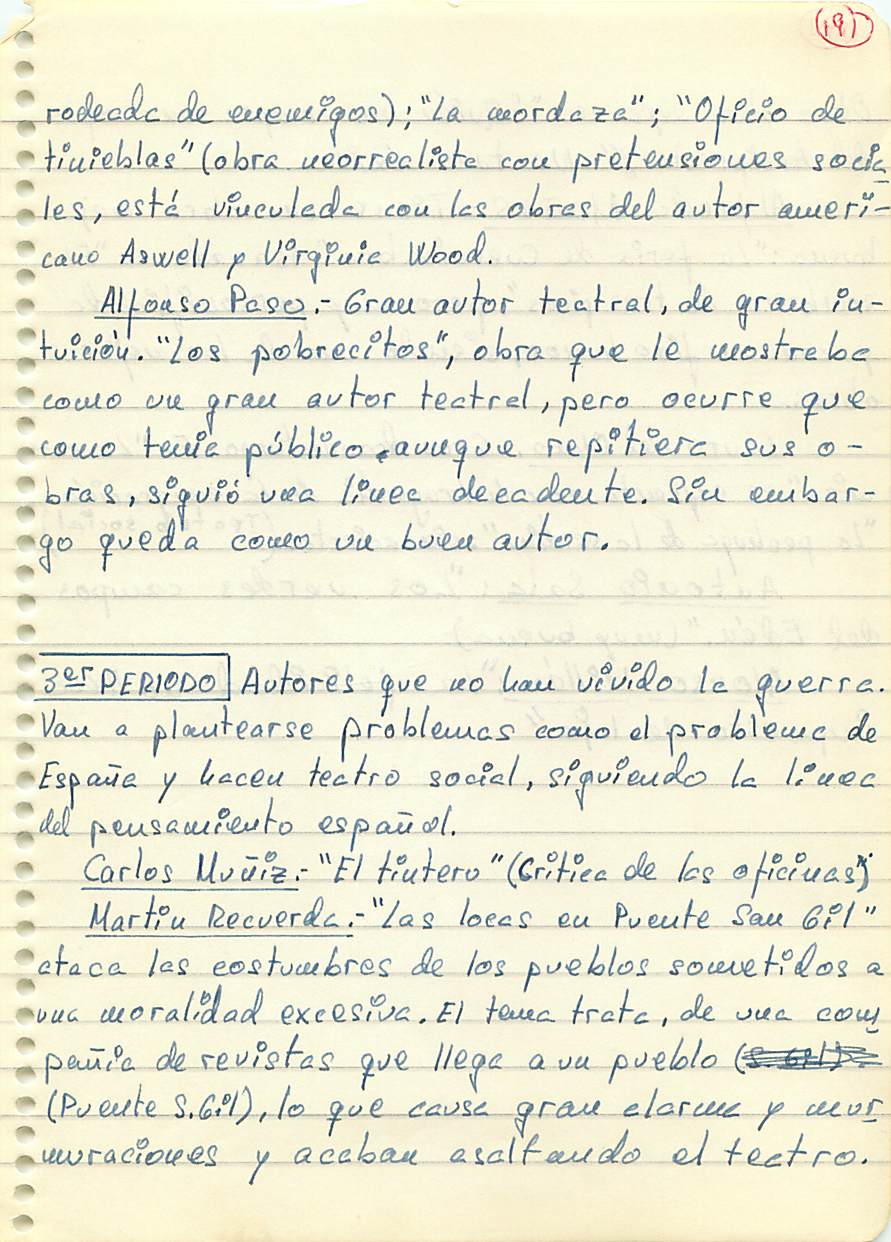 191
rodeada de enemigos); "La mordaza"; "Oficio de
tinieblas" (obra neorrealista con pretensiones socia
les, está vinculada con las obras del autor ameri-
cano Aswell y Virginia Wood.
Alfonso Paso.- Gran autor teatral, de gran in-
tuición. "Los pobrecitos", obra que le mostraba
como un gran autor teatral, pero ocurre que
como tenía público, aunque repitiera sus o-
bras, siguió una línea decadente. Sin embar-
go queda como un buen autor.
3er PERIODO Autores que no han vivido la guerra.
Van a plantearse problemas como el problema de
España y hacen teatro social, siguiendo la línea
del pensamiento español.
Carlos Muñiz.- "El tintero" (Crítica de las oficinas)
Martín Recuerda.- "Las locas en Puente San Gil"
ataca las costumbres de los pueblos sometidos a
una moralidad excesiva. El tema trata, de una com
pañía de revistas que llega a un pueblo
(Puente S. Gil), lo que causa gran alarma y mur
muraciones y acaban asaltando el teatro.